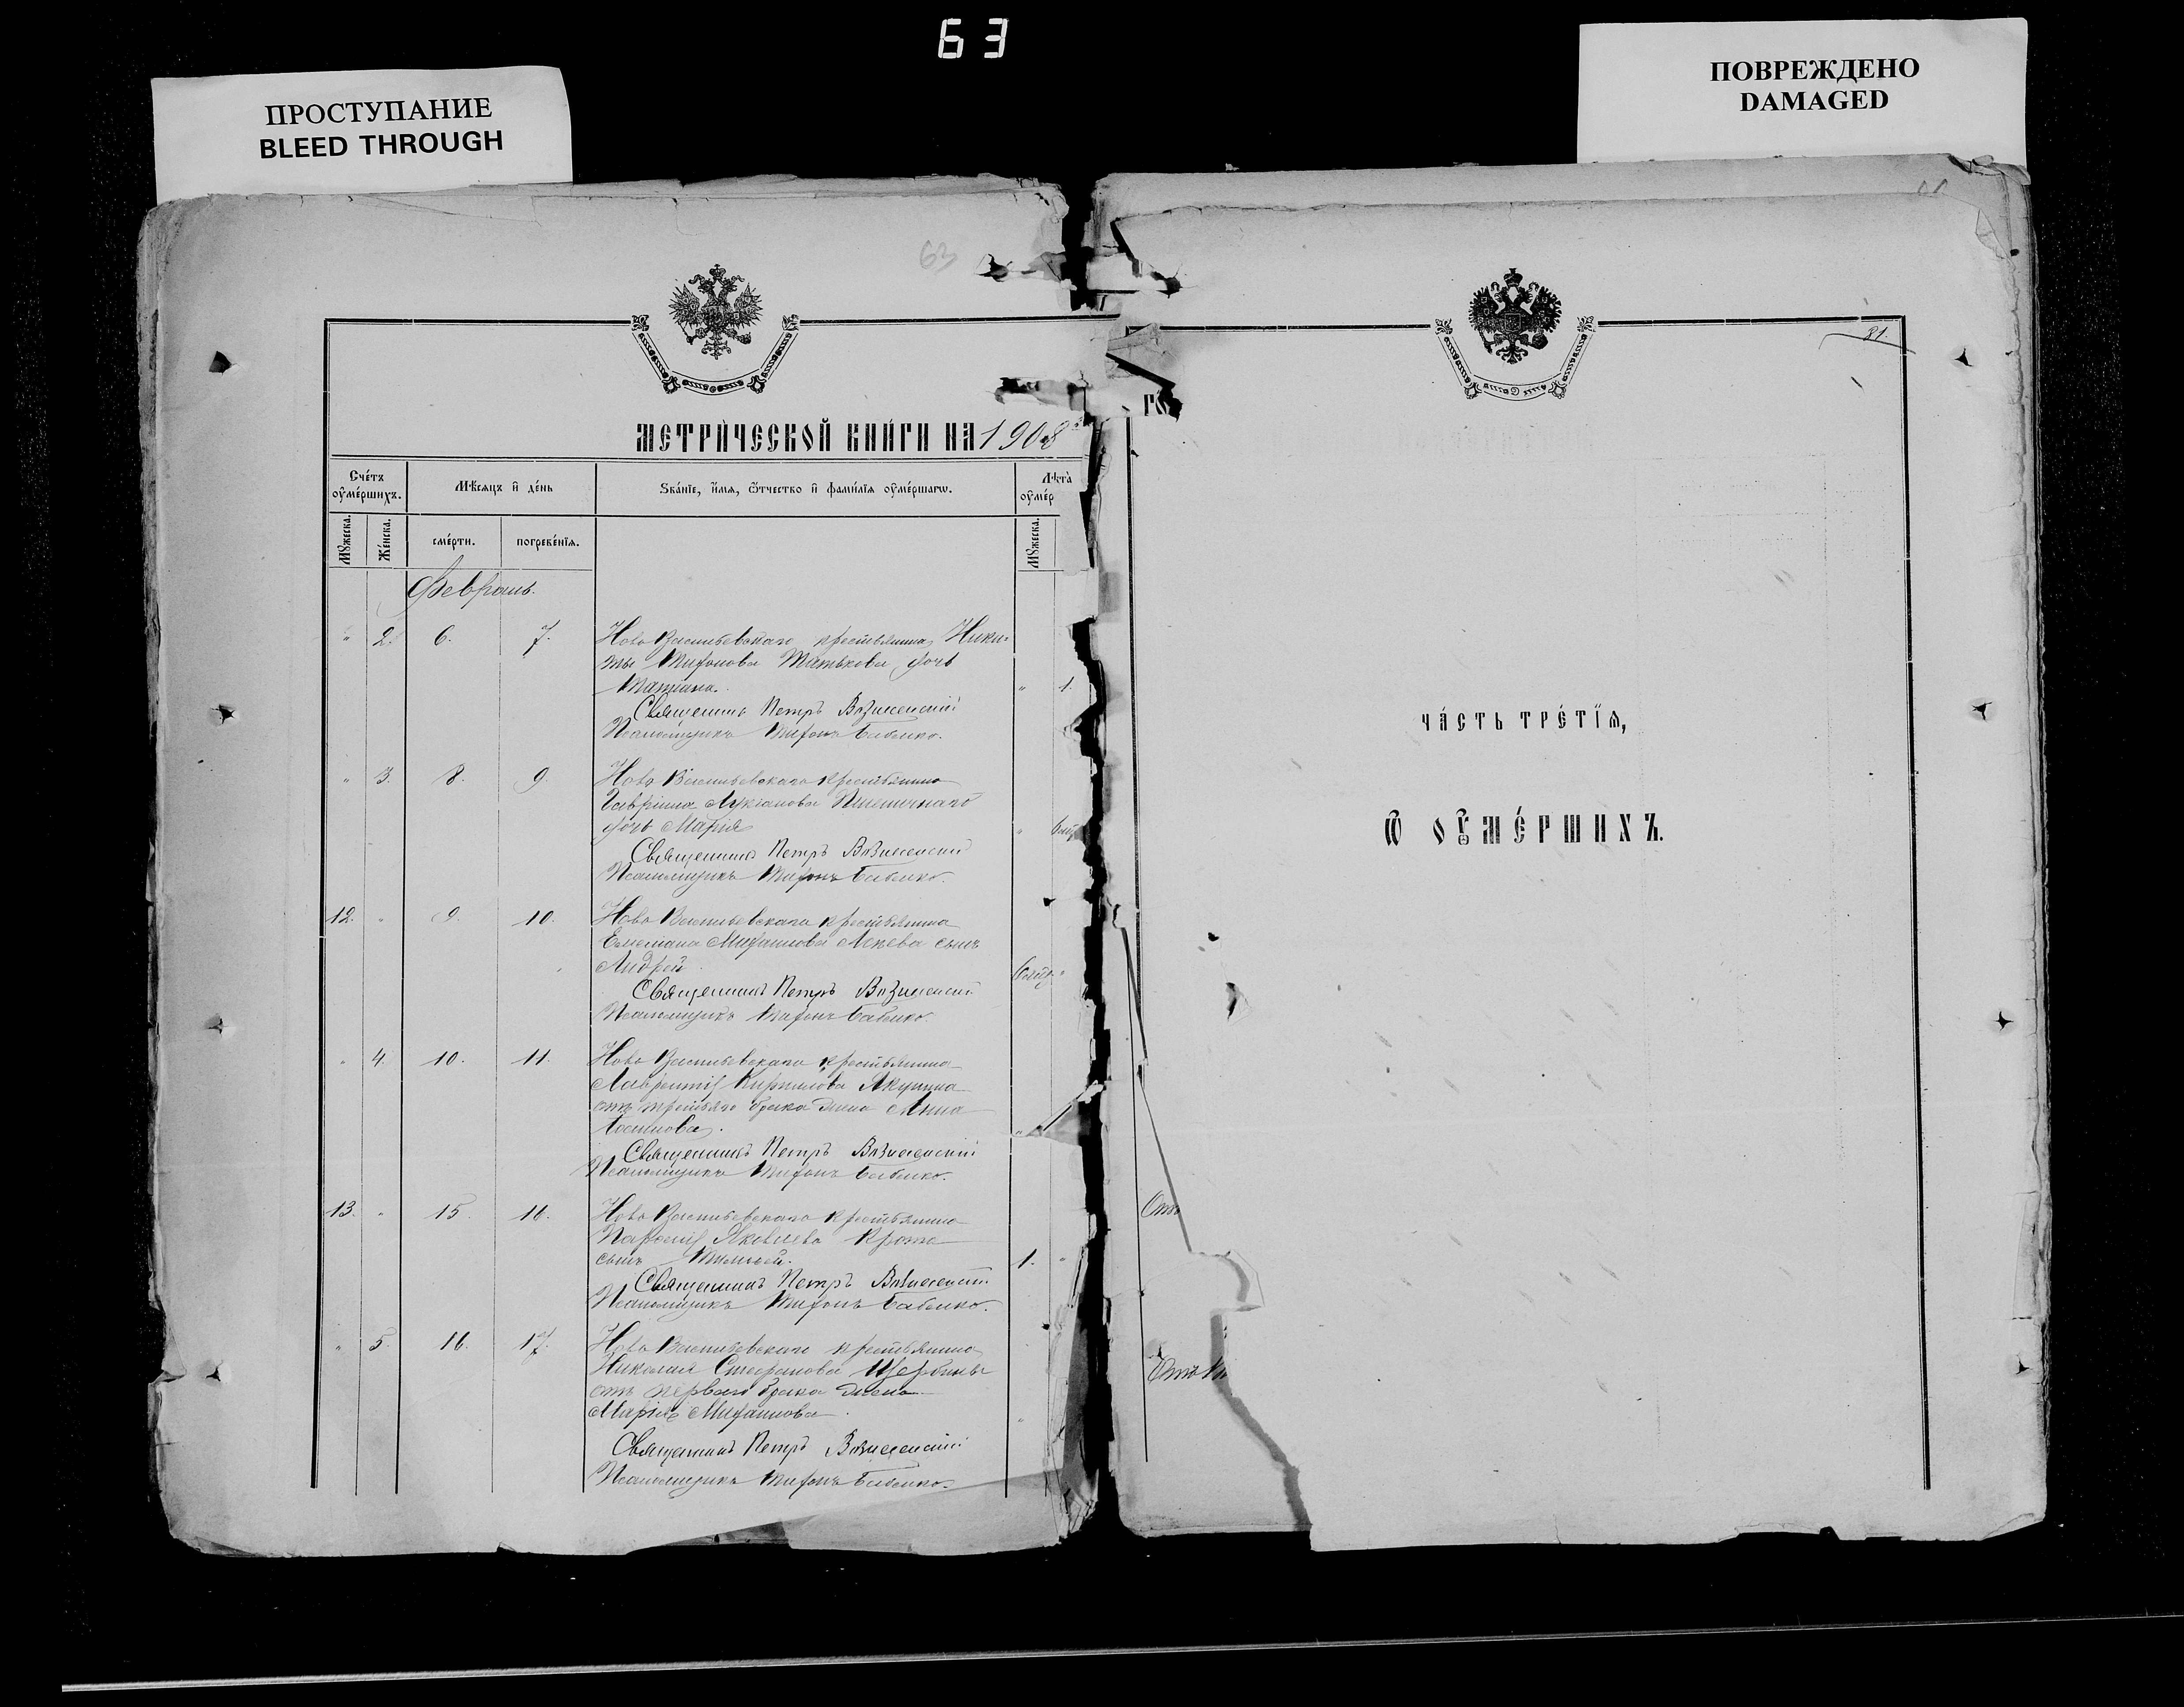 63
ПРОСТУПАНИЕ
BLEED THROUGH
ПОВРЕЖДЕНО
DAMAGED
63
МЕТРИ́ЧЕСКОЙ КНИ́ГИ НА 1908
Сче́тъ ᲂу҆ме́ршихъ.
Мѣ́сяцъ и҆ де́нь
Ѕва́нїе, и҆́мя, ѻ҆́тчество и҆ фами́лїя ᲂу҆ме́ршагѡ.
Лѣта̀ ᲂу҆ме́р
Мꙋ́жеска.
Же́нска.
сме́рти.
погребе́нїя.
Мꙋ́жеска.
Февраль.
" 2. 6. 7. Ново Васильевскаго крестьянина Ники-
ты Тихонова дочь
Татіана. " 1.
Священникъ Петръ Вознесенскій
Псаломщикъ Тихонъ Бабенко.
" 3. 8. 9. Ново Васильевскаго крестьянина
Гавріила Лукіанова Пшеничнаго
дочь Марія "
Священникъ Петръ Вознесенскій
Псаломщикъ Тихонъ Бабенко.
12. " 9. 10. Ново Васильевскаго крестьянина
Емеліана Михаилова сынъ
Андрей.
Священникъ Петръ Вознесенскій
Псаломщикъ Тихонъ Бабенко.
" 4. 10. 11. Ново Васильевскаго крестьянина
Лаврентія Кириллова Якунина
отъ третьяго брака жена Анна
"
Священникъ Петръ Вознесенскій
Псаломщикъ Тихонъ Бабенко.
13. " 15. 16. Ново Васильевскаго крестьянина
Яковлева
сынъ Тимофей. 1. "
Священникъ Петръ Вознесенскій
Псаломщикъ Тихонъ Бабенко.
" 5. 16. 17. Ново Васильевскаго крестьянина
Николая Стефанова Щербины
отъ перваго брака жена
Марія Михаилова. "
Священникъ Петръ Вознесенскій
Псаломщикъ Тихонъ Бабенко.
ГО
81
ЧА́СТЬ ТРЕ́ТЇѦ,
Ѽ ОУМЕ́РШИХЪ.